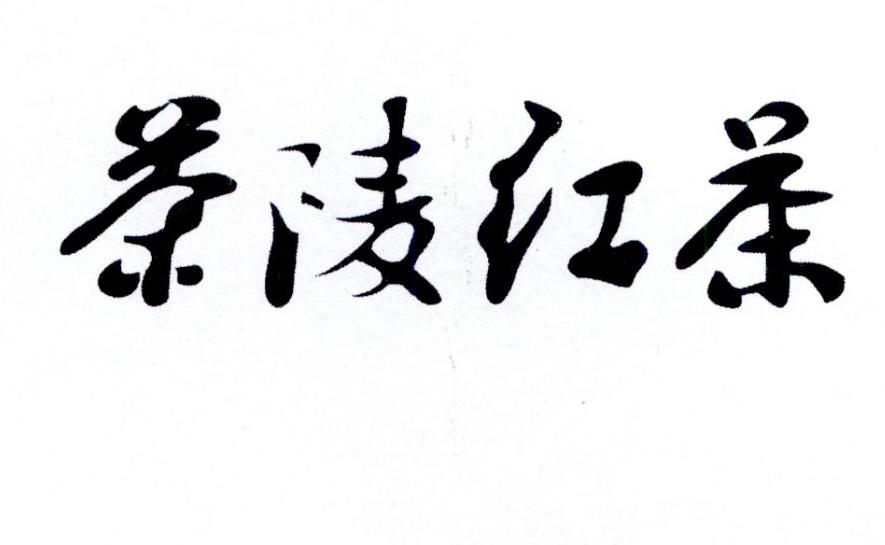 茶陵红茶